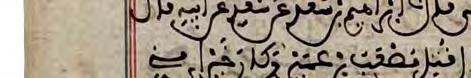 قال ابراهيم بن سعد عن سعد عن ابيه قال
قتل مصعب بن عمير وكان خيرا مني